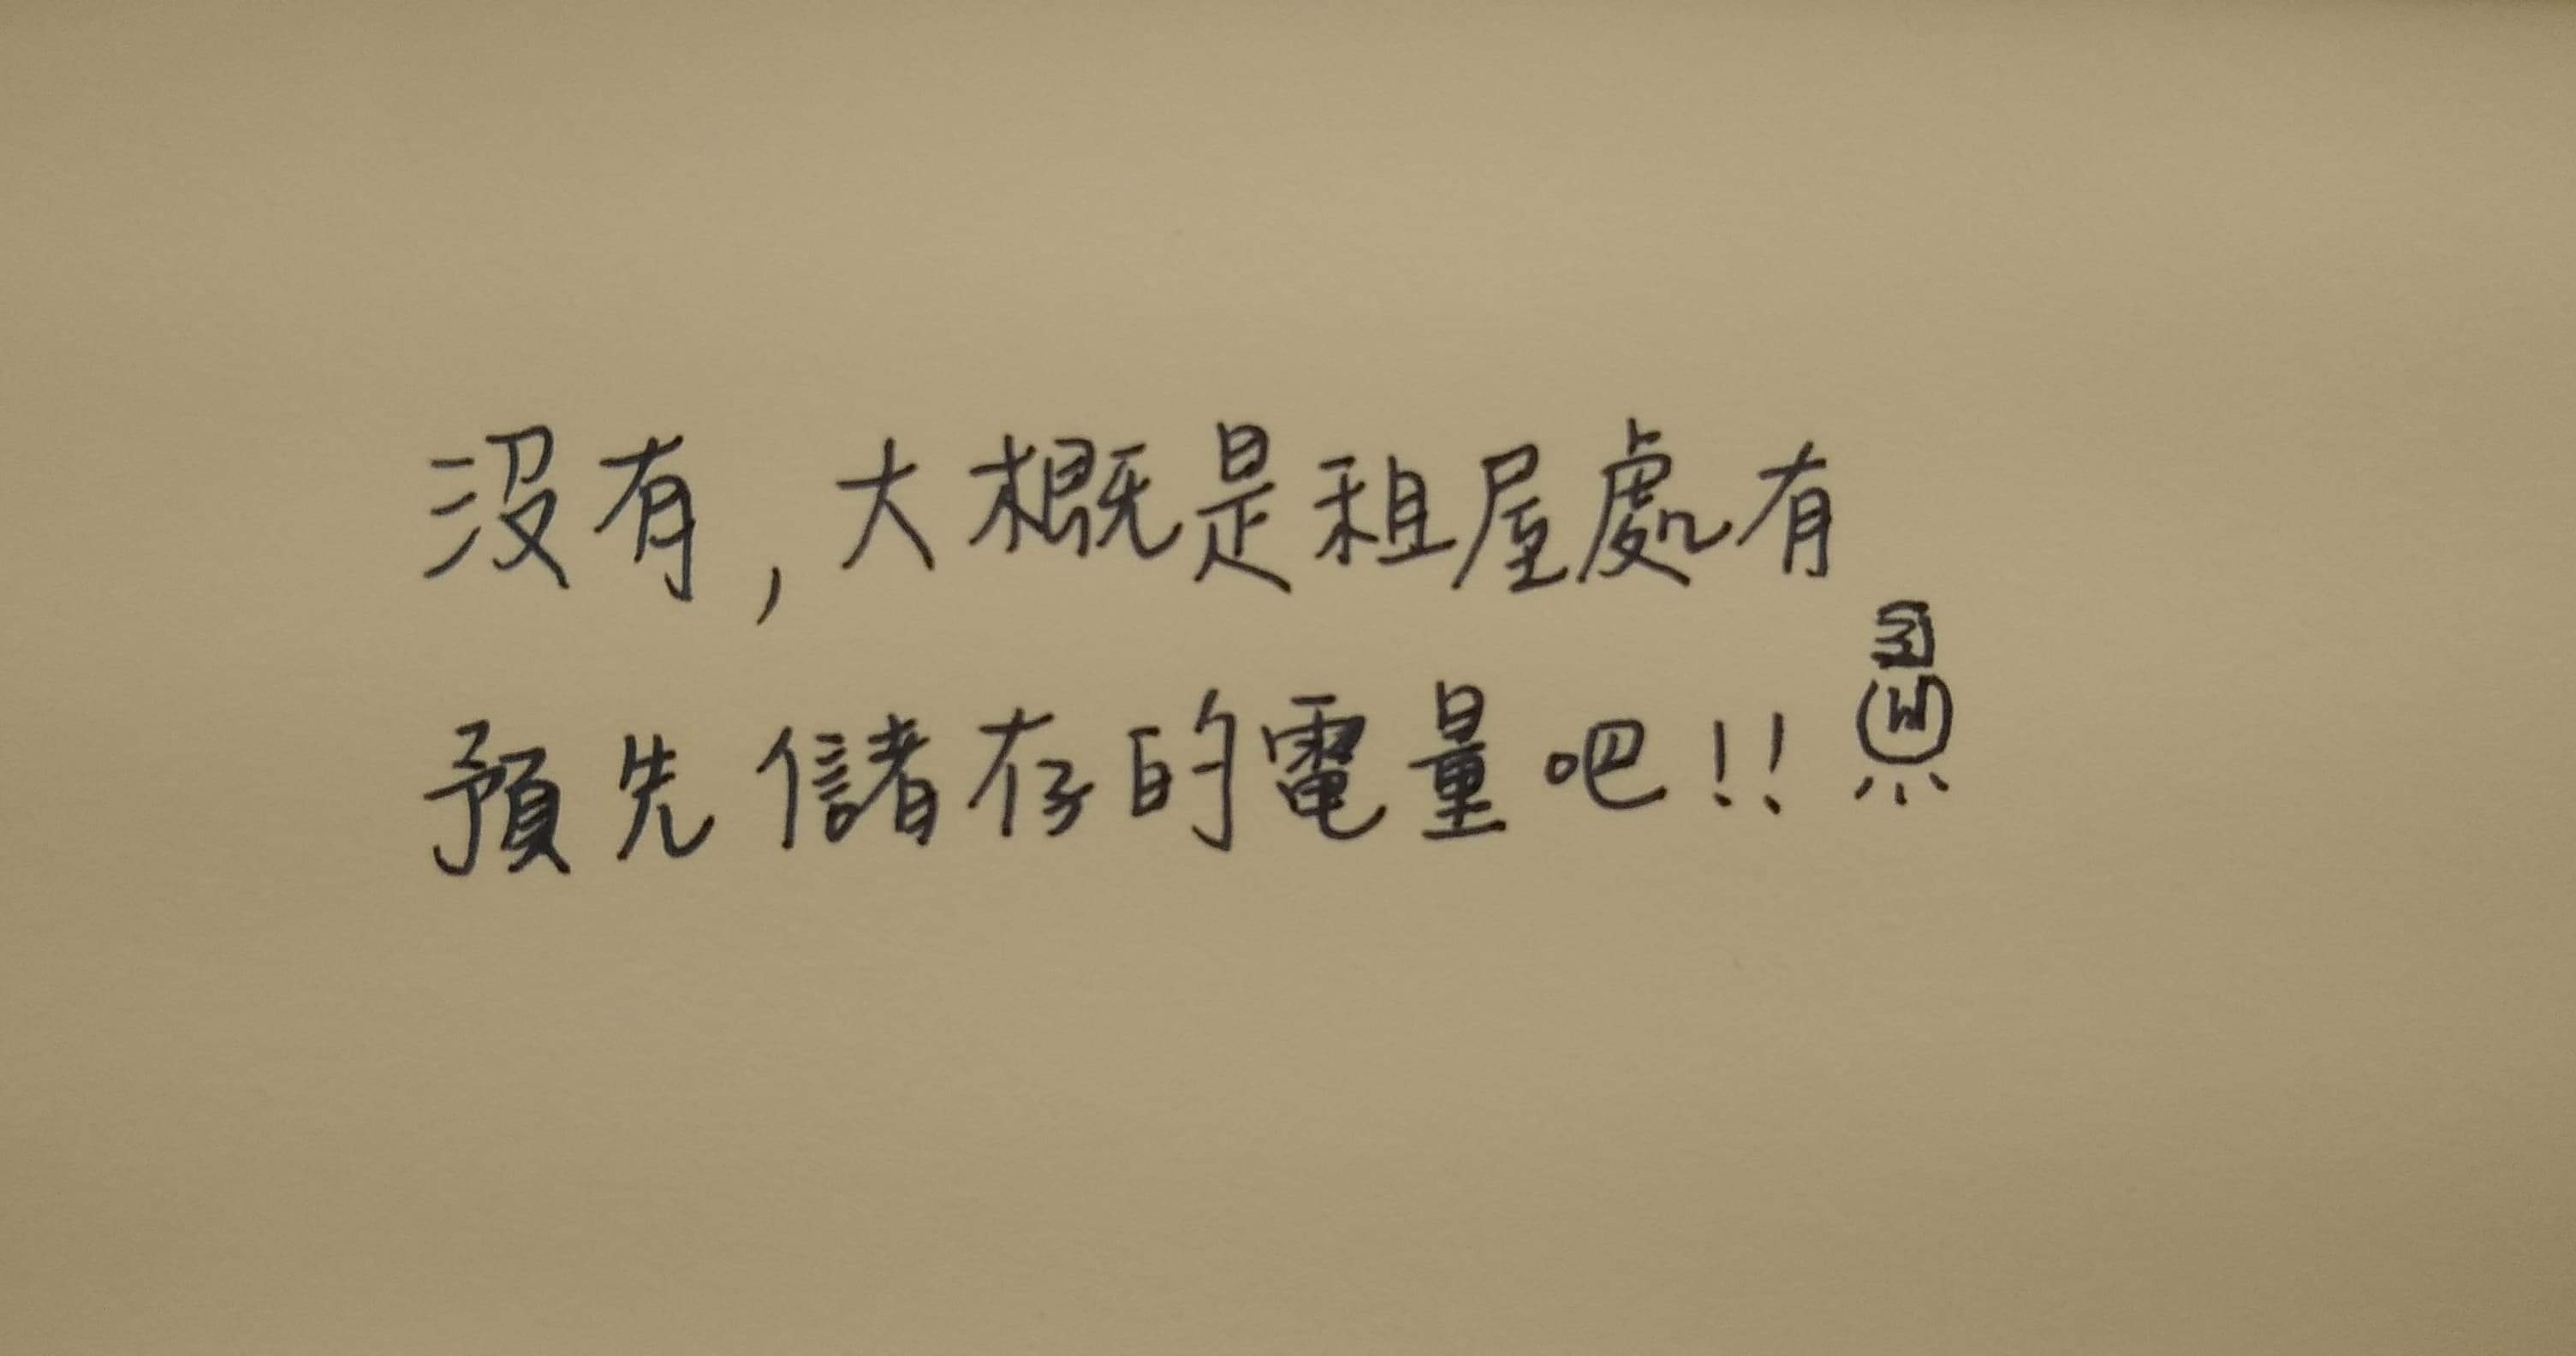 沒有,大概是租屋處有
預先儲存的電量吧!!